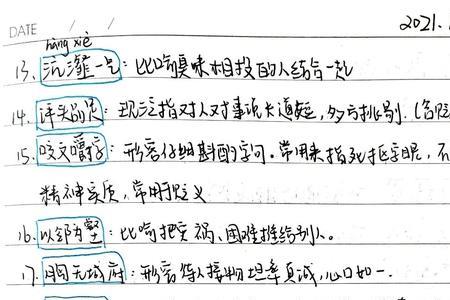 DATE / / 2021.
hàng xiè
13. 沆瀣一气：比喻臭味相投的人结合一起
14. 评头品足：现泛指对人对事说长道短，多方挑剔。(含贬
15. 咬文嚼字：形容仔细斟酌字句。常用来指死抠字眼，不
精神实质，常用贬义
16. 以邻为壑：比喻把灾祸、困难推给别人。
17. 胸无城府：形容待人接物坦率真诚，心口如一.